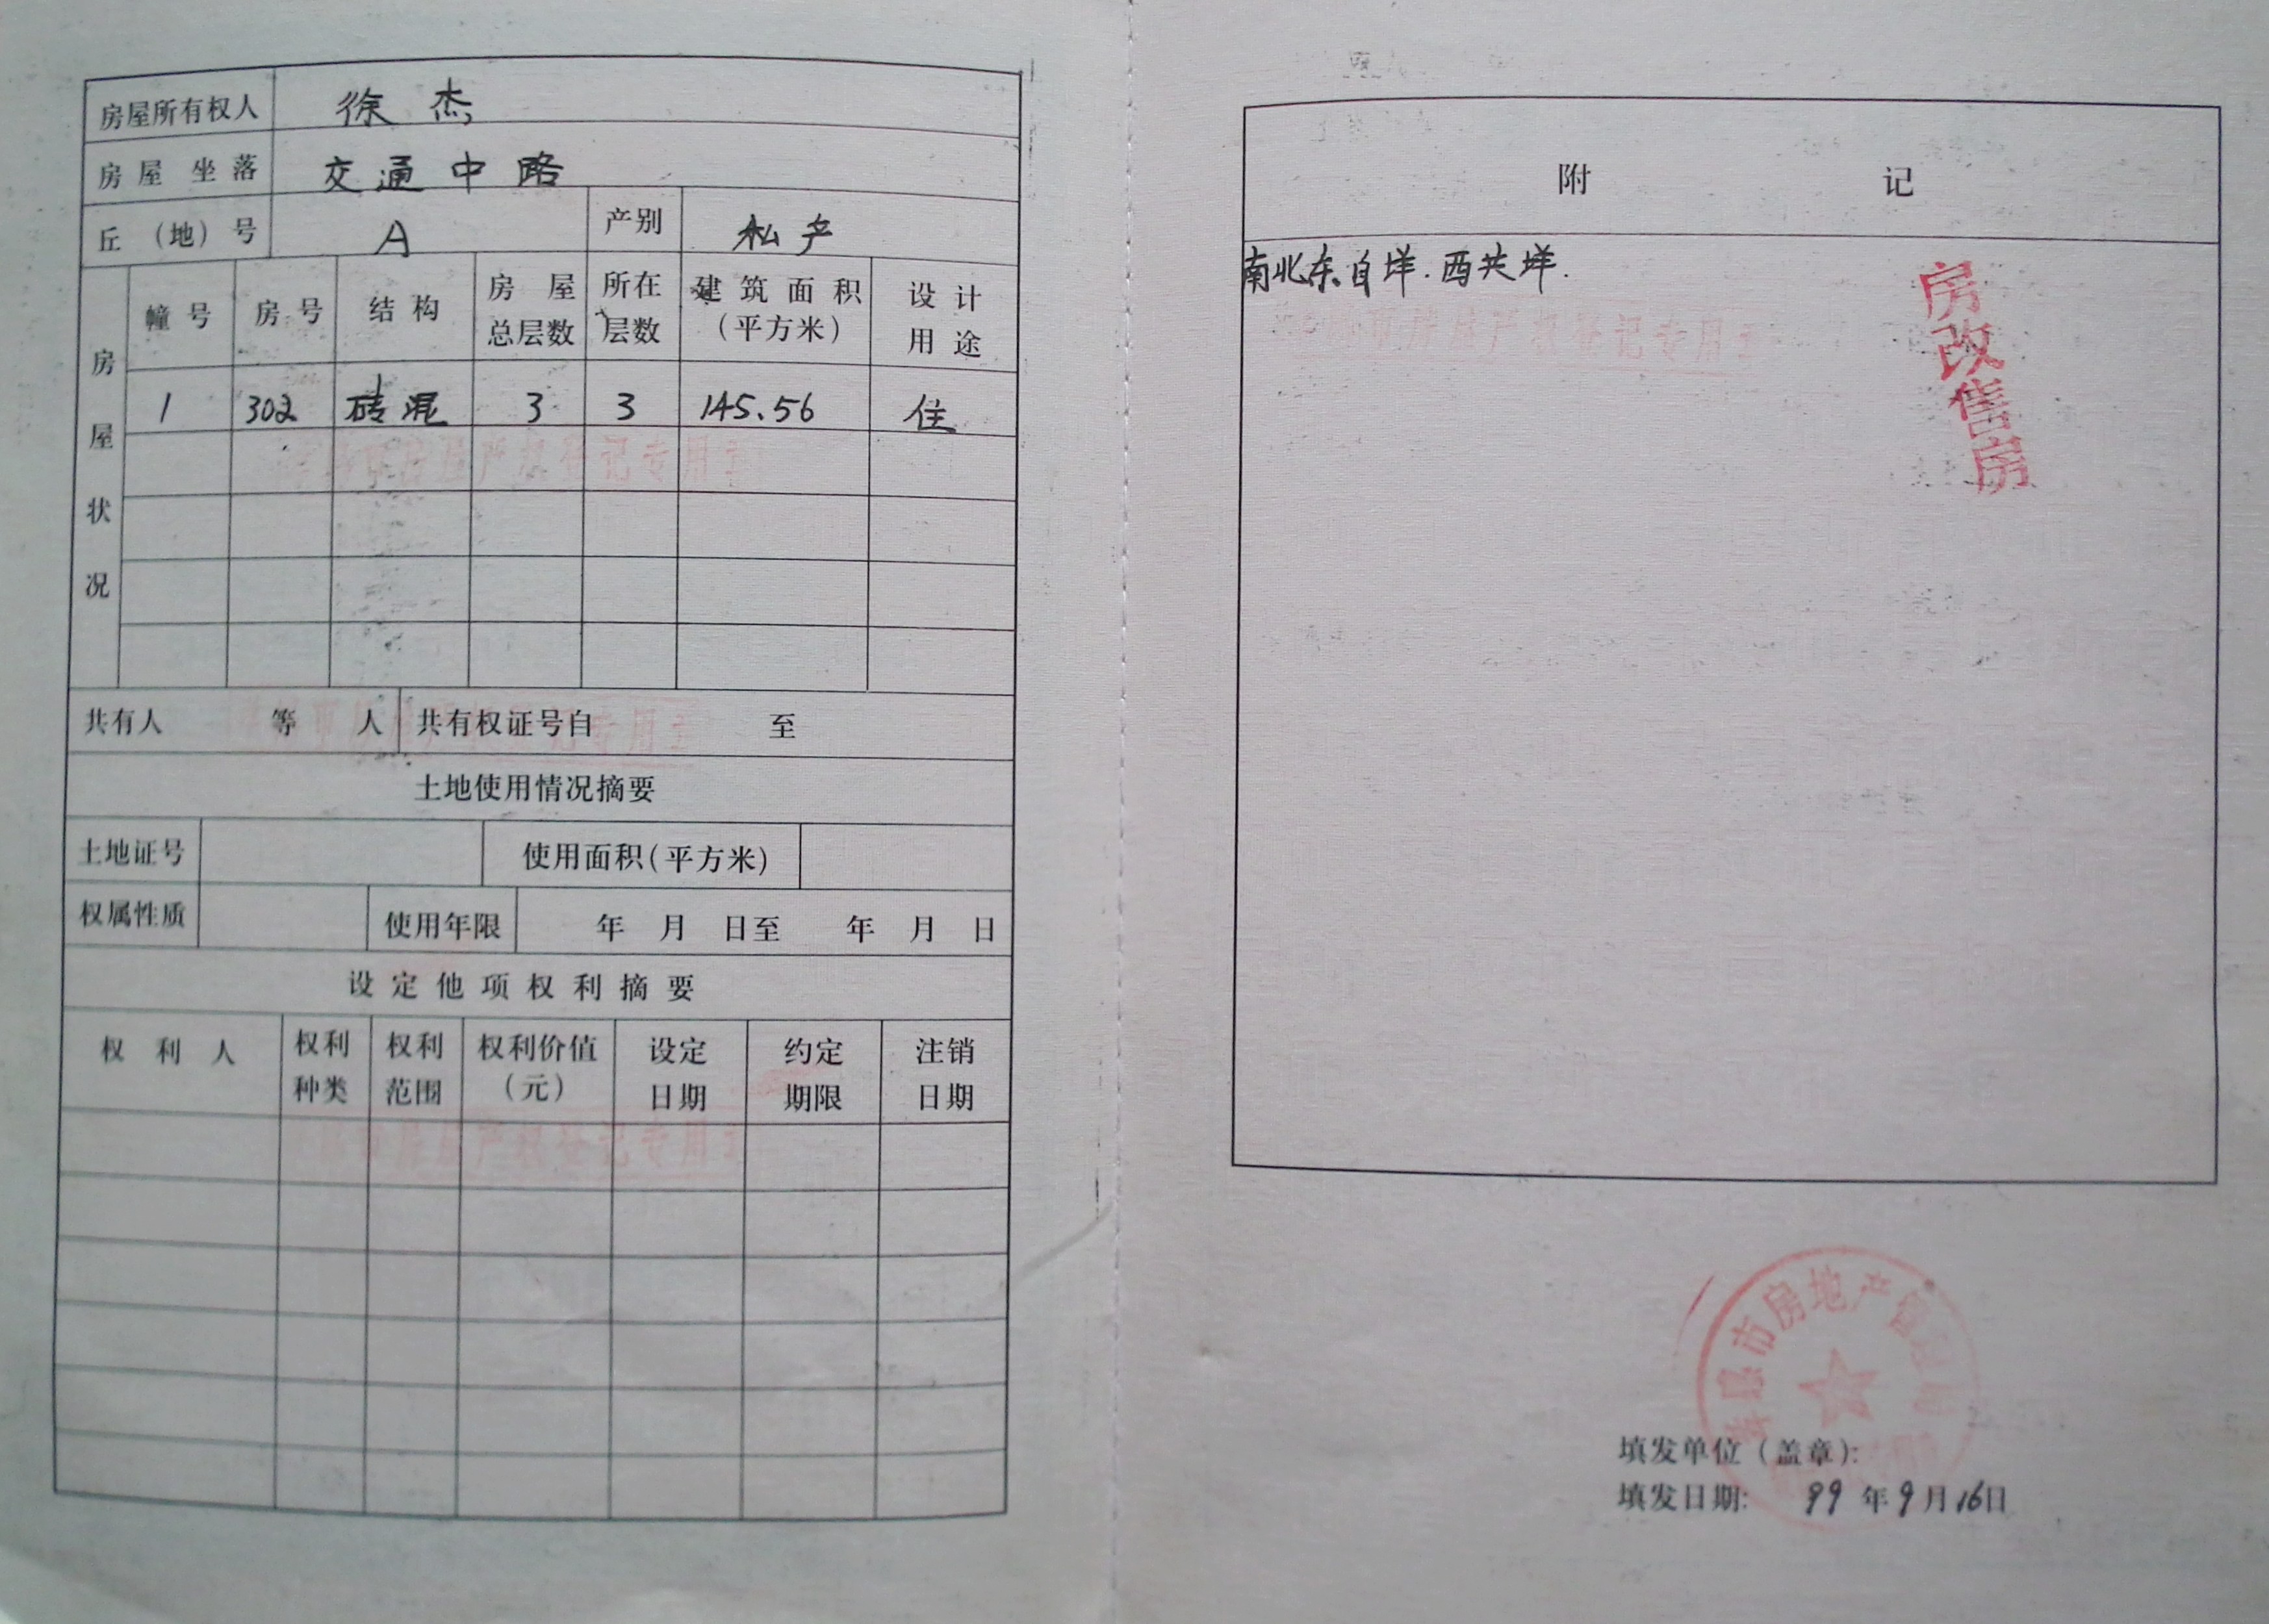 房屋所有权人 徐杰
房屋坐落 交通中路
丘（地）号 A 产别 私产
房屋状况
幢号 房号 结构 房屋总层数 所在层数 建筑面积（平方米） 设计用途
1 302 砖混 3 3 145.56 住
共有人 等 人 共有权证号自 至
土地使用情况摘要
土地证号 使用面积(平方米)
权属性质 使用年限 年 月 日至 年 月 日
设定他项权利摘要
权利人 权利种类 权利范围 权利价值（元） 设定日期 约定期限 注销日期
附 记
南北东自垟.西共垟.
房改售房
市房地产
填发单位（盖章）:
填发日期: 99年9月16日